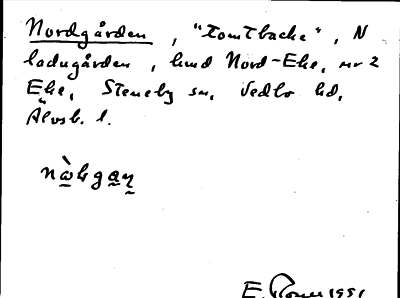 Nordgården, "Tomtbacke", N
ladugården, hmd Nord-Ehe, nr 2
Ehe, Steneby sn, Vedbo hd,
Älvsb. l.
nàhgaṇ
E. 1991